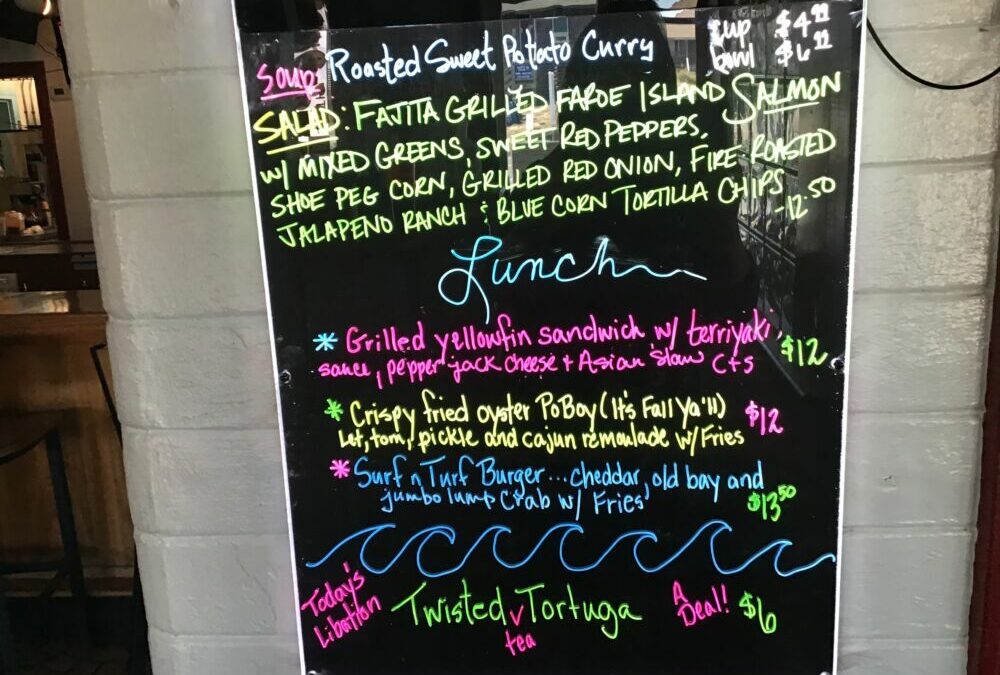 Soup: Roasted Sweet Potato Curry cup $4.99
bowl $6.99
SALAD: FAJITA GRILLED FAROE ISLAND SALMON
w/ MIXED GREENS, SWEET RED PEPPERS,
SHOE PEG CORN, GRILLED RED ONION, FIRE ROASTED
JALAPENO RANCH & BLUE CORN TORTILLA CHIPS -12.50
Lunch
* Grilled yellowfin sandwich w/ terriyaki
sauce, pepper jack cheese + Asian Slaw C+S $12
* Crispy fried oyster PoBoy (It's Fall Ya'll) $12
Let, tom, pickle and cajun remoulade w/ Fries
* Surf n Turf Burger... cheddar, old bay and
jumbo lump Crab w/ Fries $13.50
Today's Libation Twisted tea Tortuga A Deal! $6